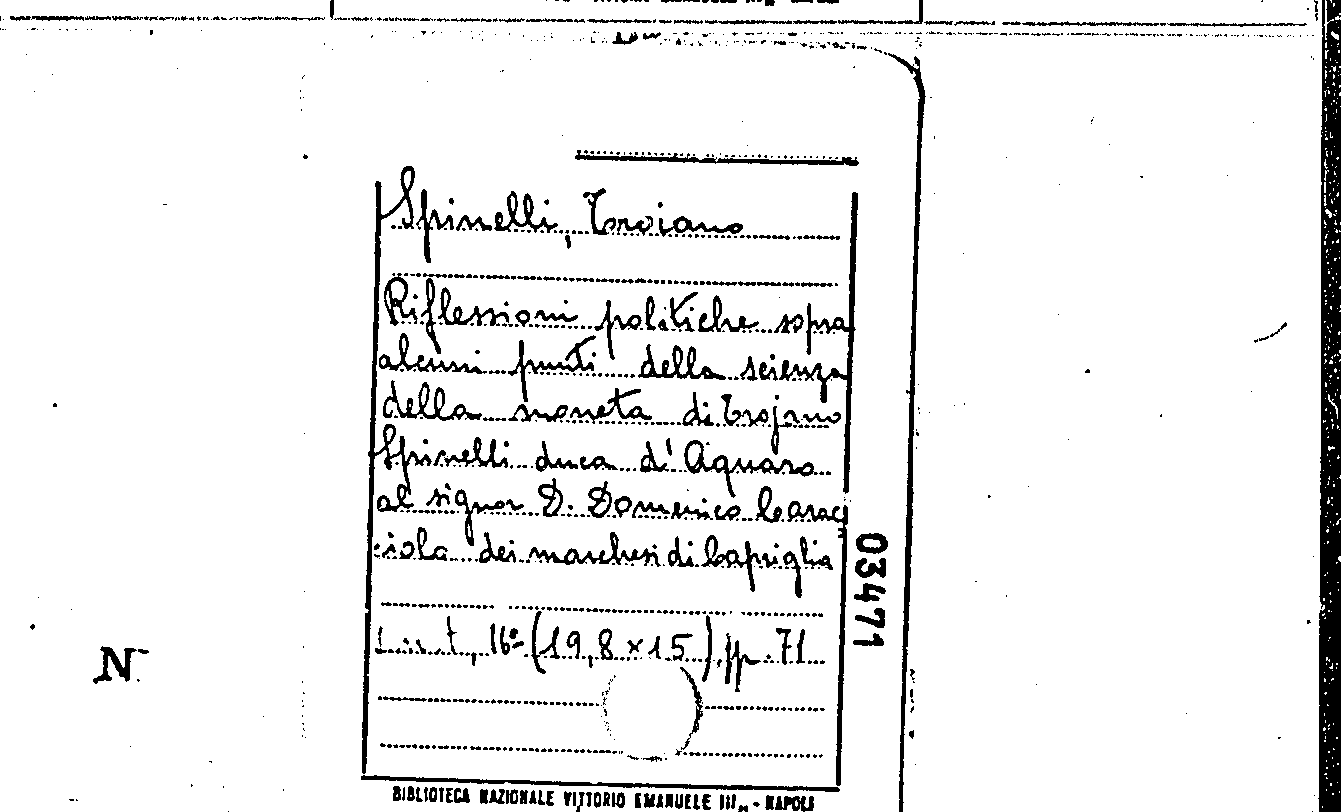 Spinelli, Troiano
Riflessioni politiche sopra
alcuni punti della scienza
della moneta di Trojano
Spinelli duca d'Aquaro
al signor D. Domenico Carac
ciolo dei marchesi di Capriglia
16º (19,8 x 15), pp. 71
03471
N
BIBLIOTECA NAZIONALE VITTORIO EMANUELE III - NAPOLI